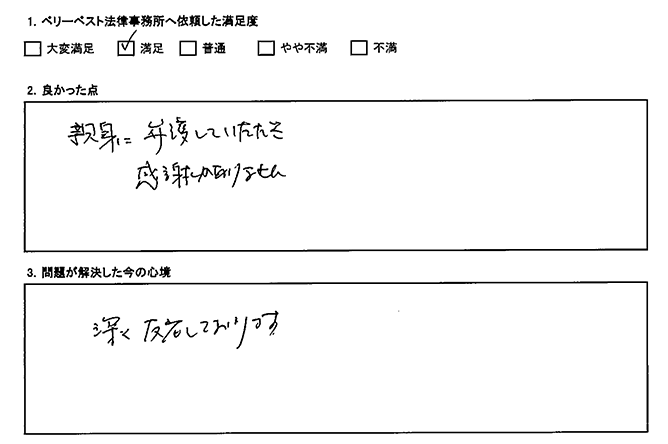 1. ベリーベスト法律事務所へ依頼した満足度
□ 大変満足 ☑ 満足 □ 普通 □ やや不満 □ 不満
2. 良かった点
親身に弁護していただき
感謝しかありません
3. 問題が解決した今の心境
深く反省しております